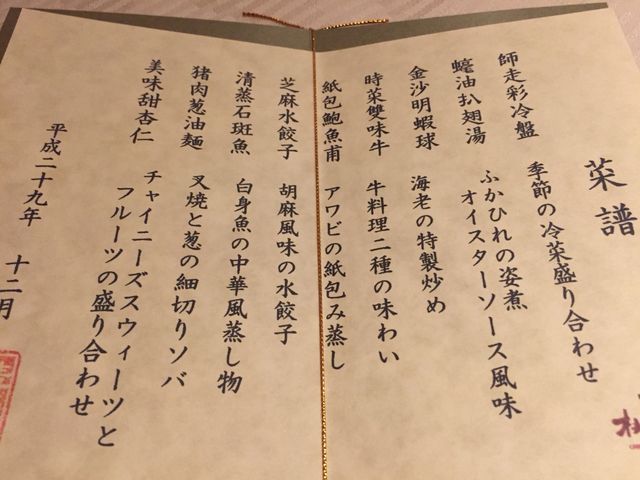 菜譜
師走彩冷盤 季節の冷菜盛り合わせ
蠔油扒翅湯 ふかひれの姿煮
オイスターソース風味
金沙明蝦球 海老の特製炒め
時菜雙味牛 牛料理二種の味わい
紙包鮑魚甫 アワビの紙包み蒸し
芝麻水餃子 胡麻風味の水餃子
清蒸石斑魚 白身魚の中華風蒸し物
猪肉葱油麺 叉焼と葱の細切りソバ
美味甜杏仁 チャイニーズスウィーツと
フルーツの盛り合わせ
平成二十九年 十二月